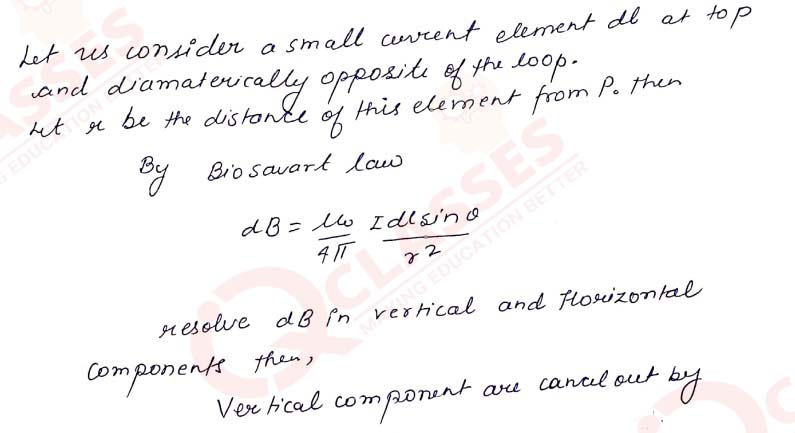 Let us consider a small current element dl at top
and diamaterically opposite of the loop.
Let r be the distance of this element from P. then
By Biosavart law
dB = μ₀/4π Idlsinθ/r²
resolve dB in vertical and Horizontal
components then,
Vertical component are cancel out by
CLASSES
MAKING EDUCATION BETTER